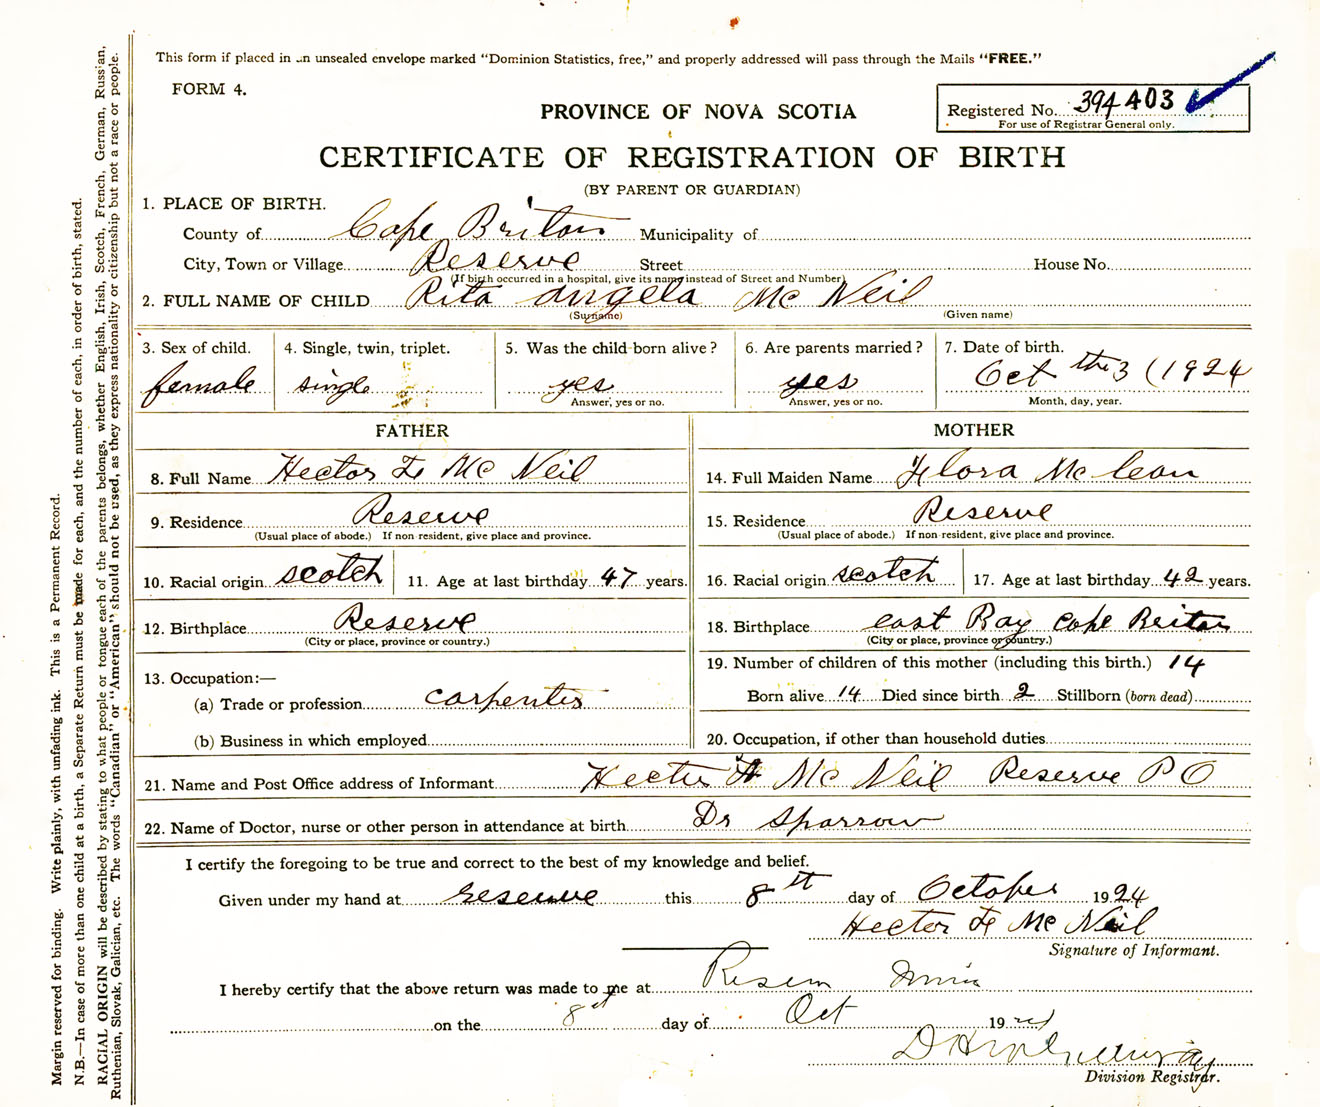 This form if placed in an unsealed envelope marked "Dominion Statistics, free," and properly addressed will pass through the Mails "FREE."
FORM 4.
Registered No. 394403
For use of Registrar General only.
PROVINCE OF NOVA SCOTIA
CERTIFICATE OF REGISTRATION OF BIRTH
(BY PARENT OR GUARDIAN)
1. PLACE OF BIRTH.
County of Cape Briton Municipality of
City, Town or Village Reserve Street House No.
(If birth occurred in a hospital, give its name instead of Street and Number)
2. FULL NAME OF CHILD Rita Angela Mc Neil
(Surname) (Given name)
3. Sex of child. female
4. Single, twin, triplet. single
5. Was the child born alive? yes
Answer, yes or no.
6. Are parents married? yes
Answer, yes or no.
7. Date of birth. Oct the 3 (1924
Month, day, year.
FATHER
8. Full Name Hector F Mc Neil
9. Residence Reserve
(Usual place of abode.) If non-resident, give place and province.
10. Racial origin scotch 11. Age at last birthday 47 years.
12. Birthplace Reserve
(City or place, province or country.)
13. Occupation:—
(a) Trade or profession carpenter
(b) Business in which employed
MOTHER
14. Full Maiden Name Flora Mc lean
15. Residence Reserve
(Usual place of abode.) If non-resident, give place and province.
16. Racial origin scotch 17. Age at last birthday 42 years.
18. Birthplace east Bay Cape Briton
(City or place, province or country.)
19. Number of children of this mother (including this birth.) 14
Born alive 14 Died since birth 2 Stillborn (born dead)
20. Occupation, if other than household duties
21. Name and Post Office address of Informant Hector F Mc Neil Reserve P O
22. Name of Doctor, nurse or other person in attendance at birth Dr Sparrow
I certify the foregoing to be true and correct to the best of my knowledge and belief.
Given under my hand at Reserve this 8th day of October 1924
Hector F Mc Neil
Signature of Informant.
I hereby certify that the above return was made to me at
on the 8th day of Oct 19
Division Registrar.
Margin reserved for binding. Write plainly, with unfading ink. This is a Permanent Record.
N.B.—In case of more than one child at a birth, a Separate Return must be made for each, and the number of each, in order of birth, stated.
RACIAL ORIGIN will be described by stating to what people or tongue each of the parents belongs, whether English, Irish, Scotch, French, German, Russian,
Ruthenian, Slovak, Galician, etc. The words "Canadian" or "American" should not be used, as they express nationality or citizenship but not a race or people.